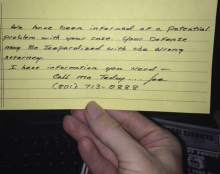 We have been informed of a potential
problem with your case. Your Defense
may be Jeopardized with the wrong
attorney.
I have information you need —
Call me Today.... Joe
(801) 713-0888